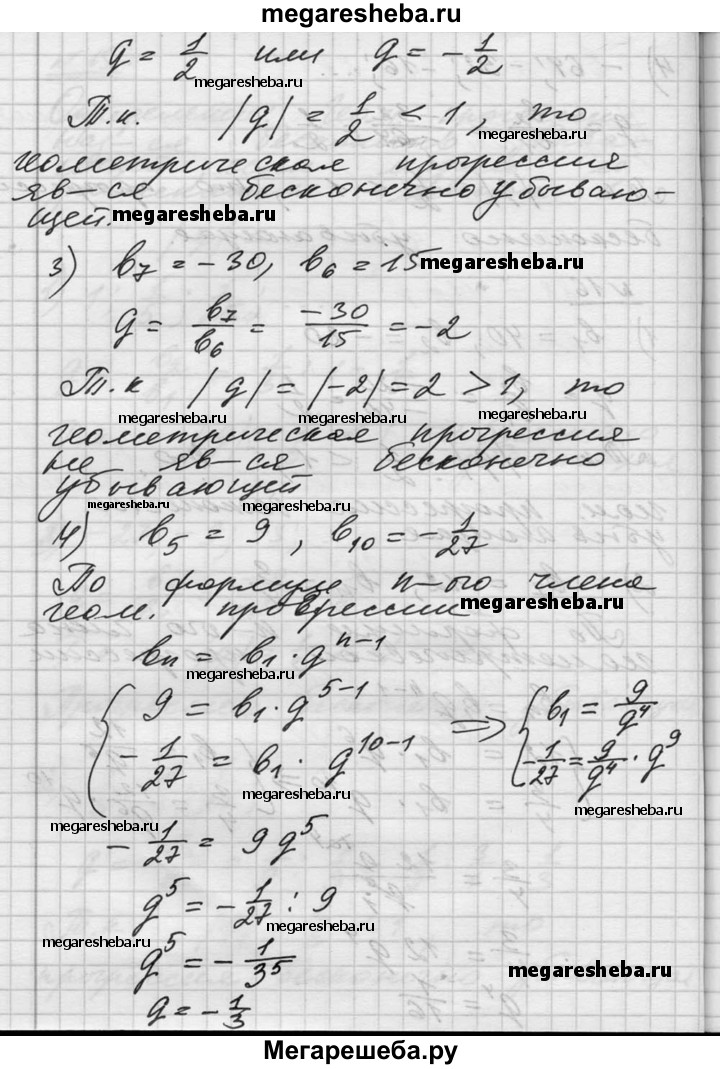 megaresheba.ru
q = 1/2 или q = - 1/2
megaresheba.ru
Т.к. |q| = 1/2 < 1, то
megaresheba.ru
геометрическая прогрессия
яв-ся бесконично убываю-
щей.
megaresheba.ru
3) b₇ = -30, b₆ = 15
megaresheba.ru
q = b₇/b₆ = -30/15 = -2
Т.к |q| = |-2| = 2 > 1, то
megaresheba.ru megaresheba.ru
геометрическая прогрессия
не яв-ся бесконечно
убывающей
4) b₅ = 9, b₁₀ = - 1/27
По формуле n-ого члена
геом. прогрессии
megaresheba.ru
bₙ = b₁ · q^(n-1)
megaresheba.ru
{ 9 = b₁ · q^(5-1) => { b₁ = 9/q⁴
- 1/27 = b₁ · q^(10-1) - 1/27 = 9/q⁴ · q⁹
megaresheba.ru
megaresheba.ru megaresheba.ru
- 1/27 = 9q⁵
q⁵ = - 1/27 : 9
megaresheba.ru
q⁵ = - 1/3⁵
megaresheba.ru
q = - 1/3
Мегарешеба.ру